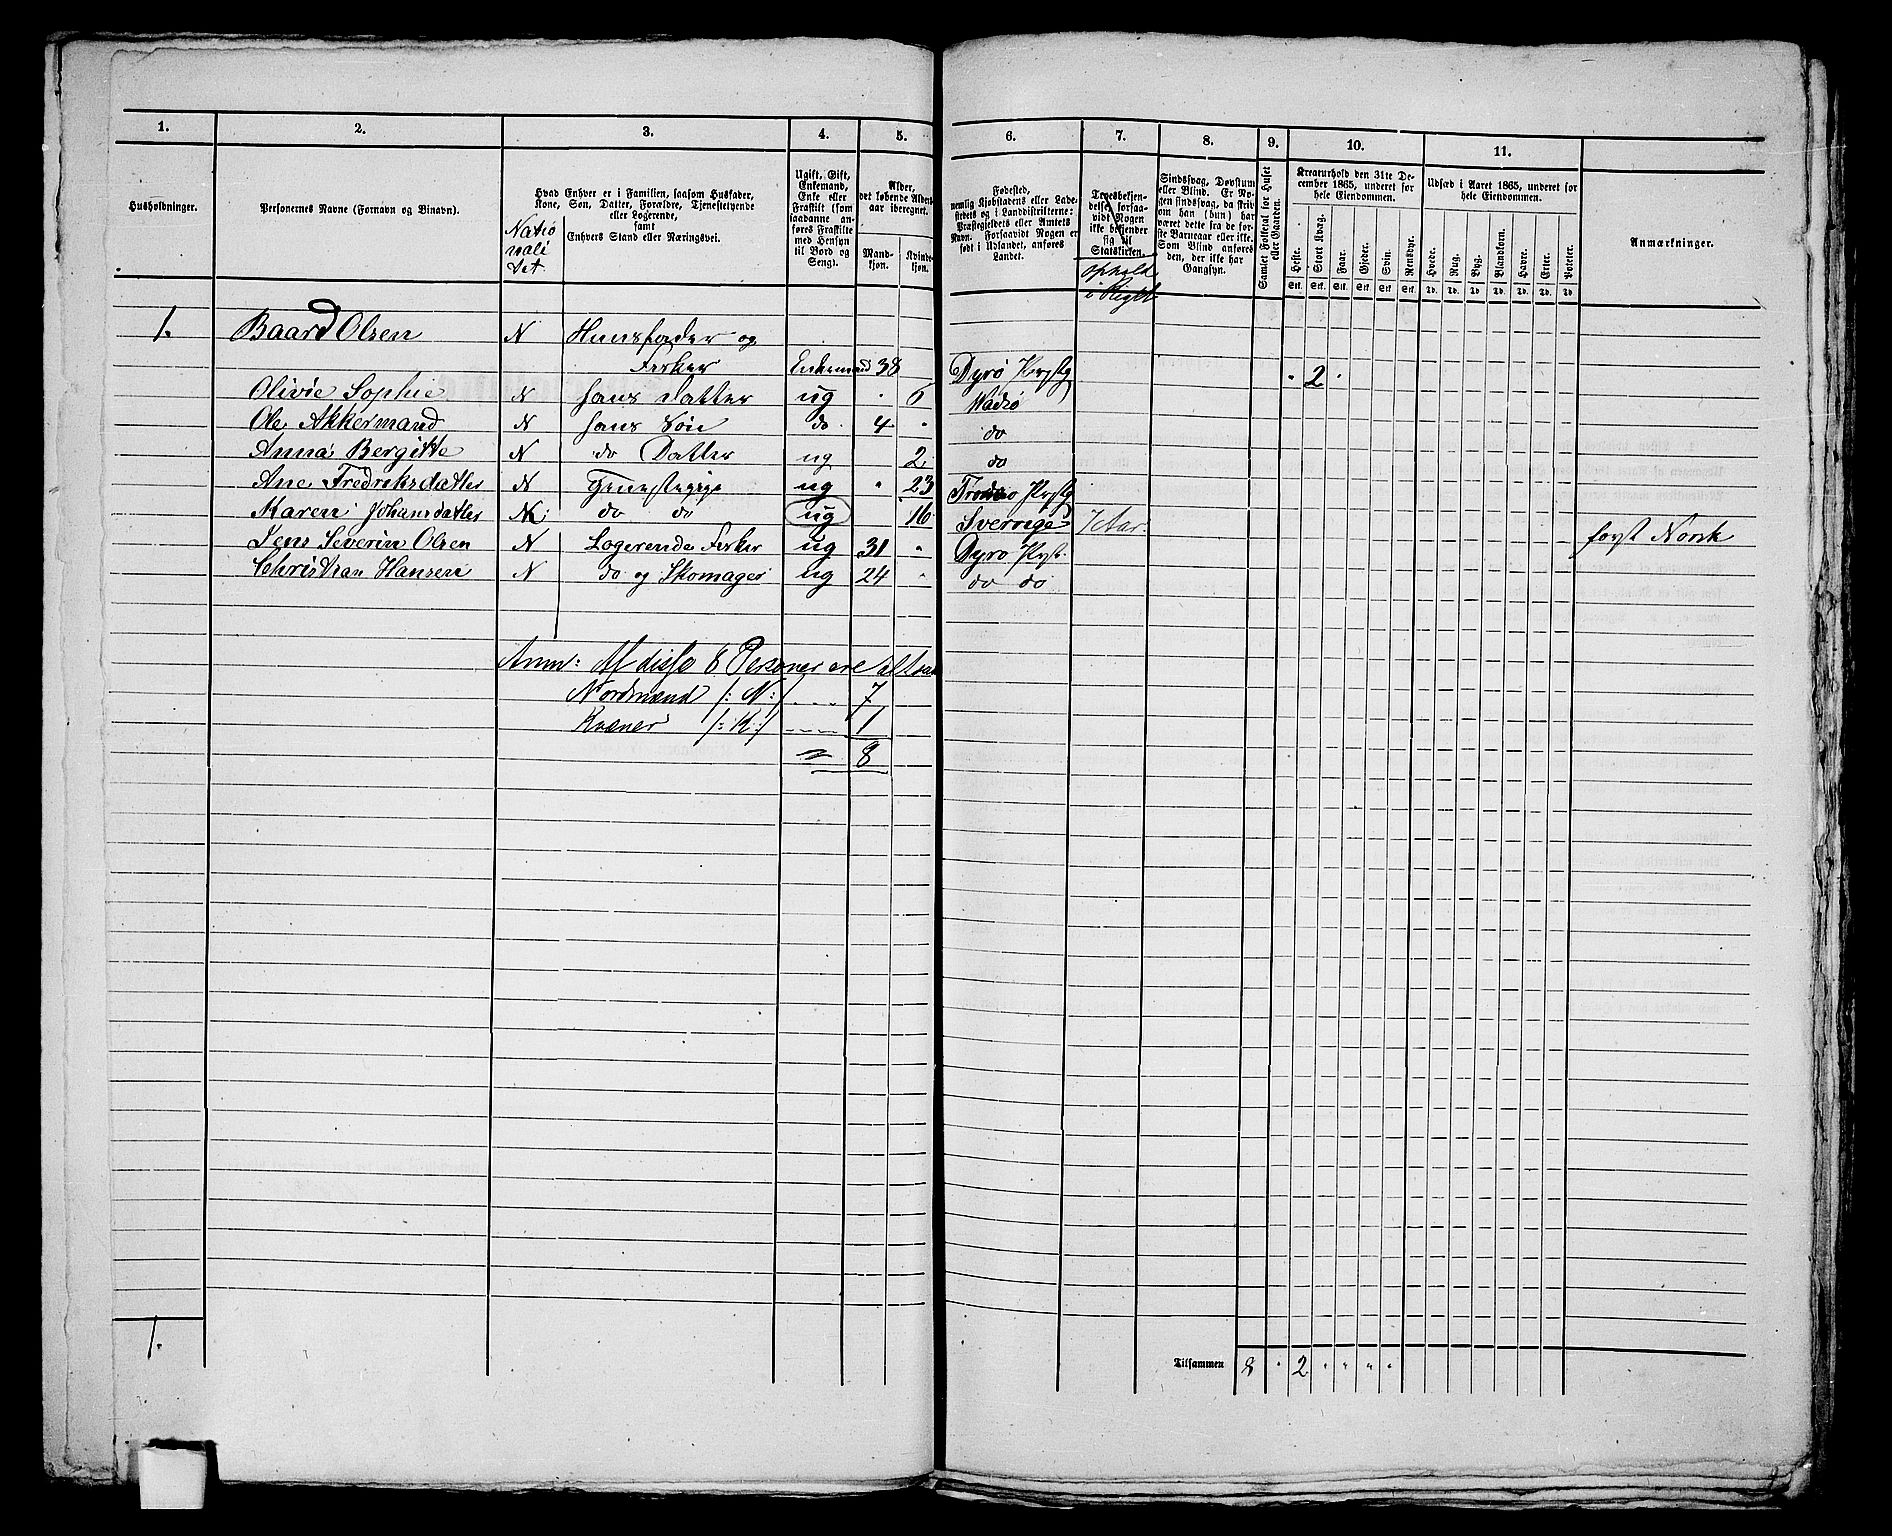 1.
2.
3.
4.
5.
6.
7.
8.
9.
10.
11.
Husholdninger.
Personernes Navne (Fornavn og Binavn).
Hvad Enhver er i Familien, saasom Husfader,
Kone, Søn, Datter, Forældre, Tjenestetyende
eller Logerende,
samt
Enhvers Stand eller Næringsvei.
Natio
nali
tet.
Ugift, Gift,
Enkemand,
Enke eller
Fraskilt (som
saadanne an-
føres Fraskilte
med Hensyn
til Bord og
Seng).
Alder,
det løbende Alders-
aar iberegnet.
Mand-
kjøn.
Kvinde-
kjøn.
Fødested,
nemlig Kjøbstadens eller Lade-
stedets og i Landdistrikterne:
Præstegjeldets eller Amtets
Navn. Forsaavidt Nogen er
født i Udlandet, anføres
Landet.
Troesbekjen-
delse, forsaa-
vidt Nogen
ikke bekjender
sig til
Statskirken.
ophold
i Riget
Sindssvag, Døvstum
eller Blind. Er No-
gen sindssvag, da skri-
ves om han (hun) har
været dette fra de før-
ste Barneaar eller ikke.
Som Blind anføres
den, der ikke har
Gangsyn.
Samlet Folketal for Huset
eller Gaarden.
Kreaturhold den 31te De-
cember 1865, underet for
hele Eiendommen.
Heste.
Stort Kvæg.
Faar.
Gjeder.
Svin.
Rensdyr.
Stk. Stk. Stk. Stk. Stk. Stk.
Udsæd i Aaret 1865, underet for
hele Eiendommen.
Hvede.
Rug.
Byg.
Blandkorn.
Havre.
Erter.
Poteter.
Td. Td. Td. Td. Td. Td. Td.
Anmærkninger.
1. Baard Olsen N Huusfader og
Fisker Enkemand 38 Dyrø Prstg " 2 "
Olivie Sophie N hans Datter ug " 6 Wadsø
Ole Akkermand N hans Søn do 4 " do
Anna Bergitte N do Datter ug 2 do
Ane Fredriksdatter N Tjenestepige ug " 23 Tromsø Prstg
Maren Johansdatter NK do do ug 16 Sverrige 7 Aar.
Jens Severin Olsen N Logerende Fisker ug 31 " Dyrø Prst. forst Norsk
Christian Hansen N do og Skomager ug 24 " do do
Anm: Af disse 8 Personer ere altsaa
Nordmænd /: N :/ 7
Kvæner /: K :/ 1
8
1.
Tilsammen 8 " 2 " " " "